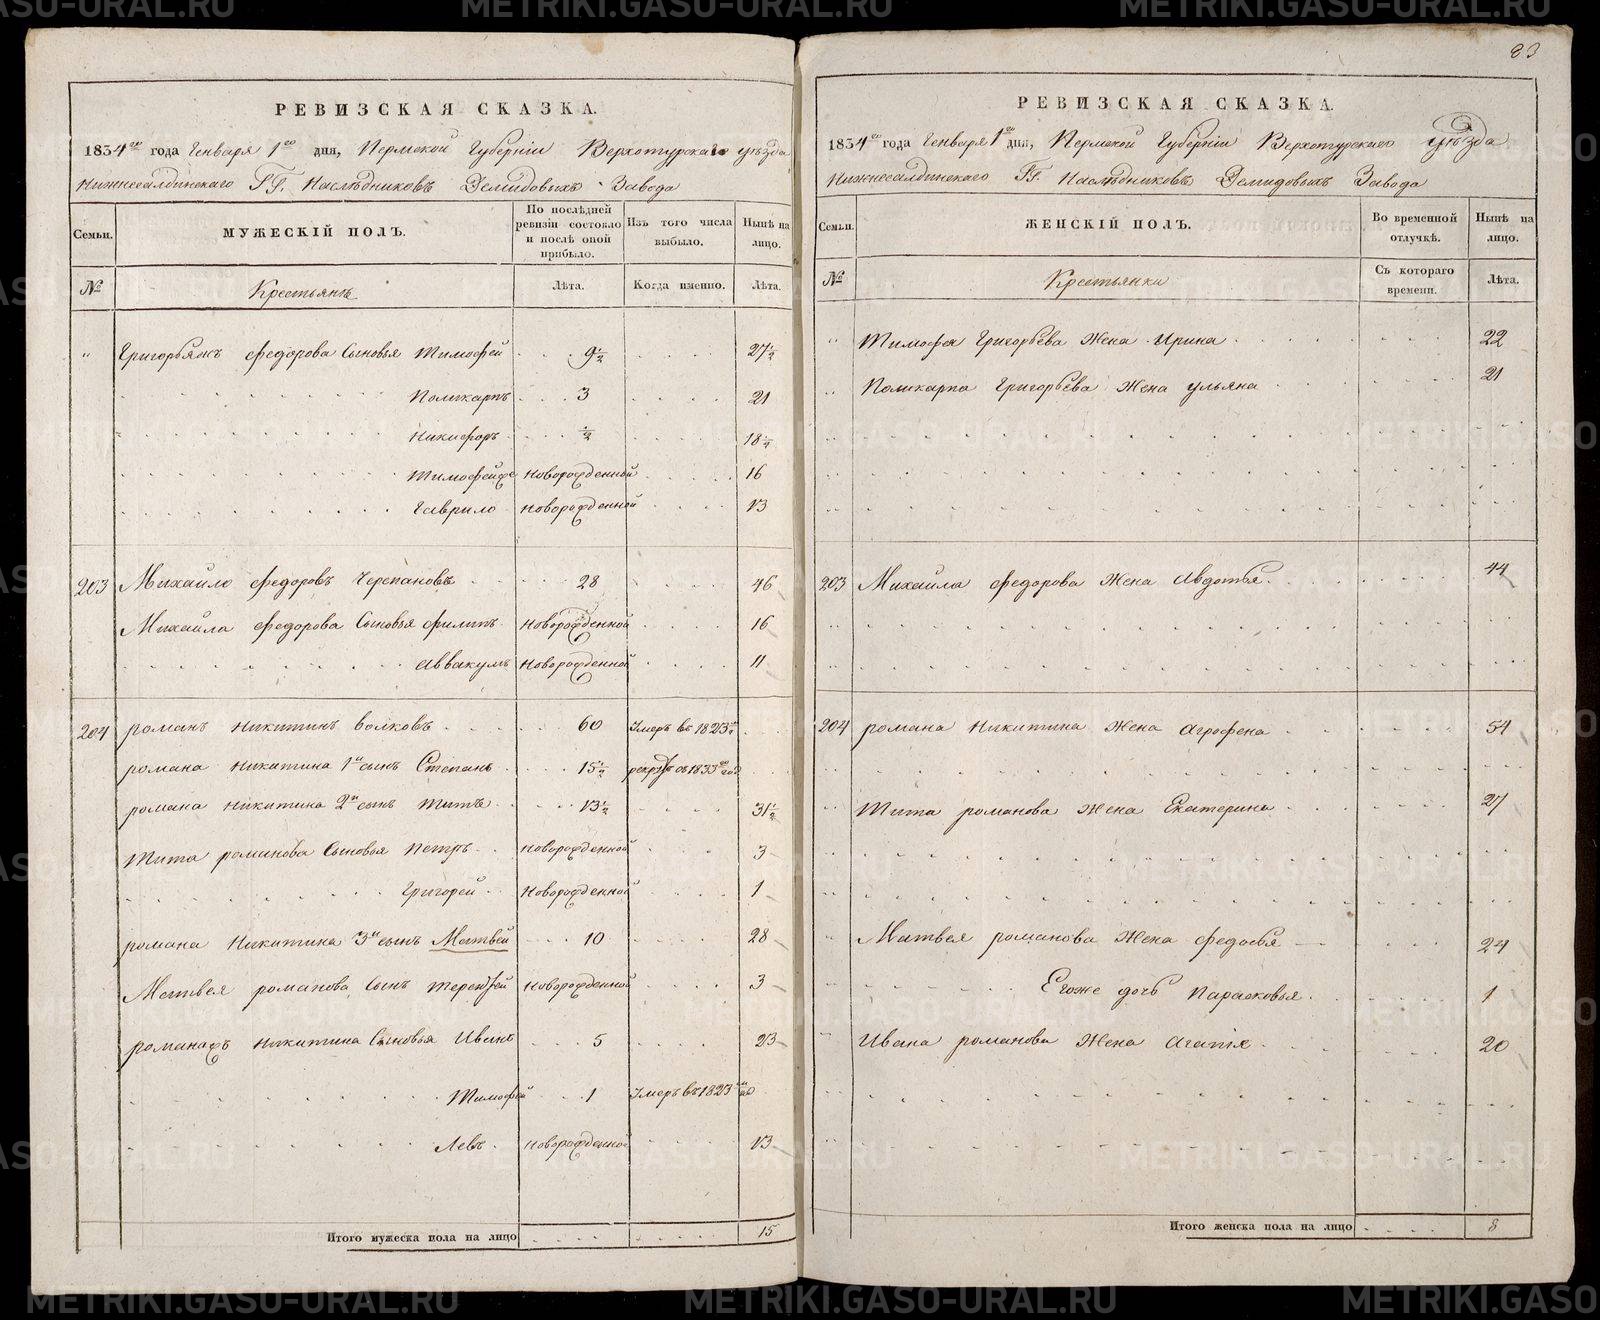 83
РЕВИЗСКАЯ СКАЗКА.
1834го года Генваря 1го дня, Пермской Губерніи Верхотурскаго уѣзда
Нижнесалдинскаго ГГ. Наслѣдниковъ Демидовыхъ Завода
Семьи. МУЖЕСКІЙ ПОЛЪ. По послѣдней ревизіи состояло и послѣ оной прибыло. Изъ того числа выбыло. Нынѣ на лицо.
№ Крестьянъ Лѣта. Когда именно. Лѣта.
" Григорьяжъ федорова Сыновья Тимофей 9½ 27½
Поликарпъ 3 21
Никифоръ ½ 18½
Тимофейже Новорожденной 16
Гаврило Новорожденной 13
203 Михайло федоровъ Черепановъ 28 46
Михайла федорова Сыновья филипъ Новорожденной 16
Аввакумъ Новорожденной 11
204 романъ Никитинъ волковъ 60 Умеръ въ 1823
романа Никитина 1й сынъ Степанъ 15½ рекрутъ съ 1833 год
романа Никитина 2й сынъ Титъ 13½ 31½
Тита романова Сыновья Петръ Новорожденной 3
Григорей Новорожденной 1
романа Никитина 3й сынъ Матвей 10 28
Матвея романова Сынъ терентей Новорожденной 3
романажъ Никитина Сыновья Иванъ 5 23
Тимофей 1 Умеръ въ 1823 год
Левъ Новорожденной 13
Итого мужеска пола на лицо 15
РЕВИЗСКАЯ СКАЗКА.
1834го года Генваря 1го дня, Пермской Губерніи Верхотурскаго уѣзда
Нижнесалдинскаго ГГ. Наслѣдниковъ Демидовыхъ Завода
Семьи. ЖЕНСКІЙ ПОЛЪ. Во временной отлучкѣ. Нынѣ на лицо.
№ Крестьянки Съ котораго времени. Лѣта.
" Тимофея Григорьева Жена Ирина 22
" Поликарпа Григорьева Жена ульяна 21
203 Михайла федорова Жена Авдотья 44
204 романа Никитина Жена Агрофена 54
" Тита романова Жена Екатерина 27
" Матвея романова Жена федосья 24
Егоже дочь Парасковья 1
" Ивана романова Жена Агапія 20
Итого женска пола на лицо 8
METRIKI.GASO-URAL.RU